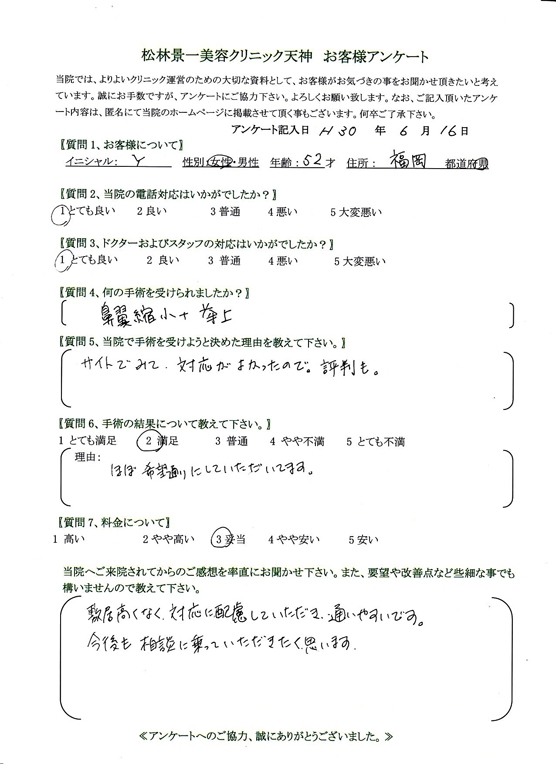 松林景一美容クリニック天神　お客様アンケート
当院では、よりよいクリニック運営のための大切な資料として、お客様がお気づきの事をお聞かせ頂きたいと考え
ています。誠にお手数ですが、アンケートにご協力下さい。よろしくお願い致します。なお、ご記入頂いたアンケ
ート内容は、匿名にて当院のホームページに掲載させて頂く事もございます。何卒ご了承下さい。
アンケート記入日 H30 年 6 月 16日
〖質問1、お客様について〗
イニシャル: Y 性別:女性・男性 年齢:52才 住所: 福岡 都道府県
〖質問2、当院の電話対応はいかがでしたか？〗
1とても良い 2良い 3普通 4悪い 5大変悪い
〖質問3、ドクターおよびスタッフの対応はいかがでしたか？〗
1とても良い 2 良い 3 普通 4悪い 5大変悪い
〖質問4、何の手術を受けられましたか？〗
鼻翼縮小+挙上
〖質問5、当院で手術を受けようと決めた理由を教えて下さい。〗
サイトでみて、対応がよかったので。評判も。
〖質問6、手術の結果について教えて下さい。〗
1 とても満足 2満足 3 普通 4 やや不満 5 とても不満
理由:
ほぼ希望通りにしていただいてます。
〖質問7、料金について〗
1 高い 2やや高い 3妥当 4やや安い 5安い
当院へご来院されてからのご感想を率直にお聞かせ下さい。また、要望や改善点など些細な事でも
構いませんので教えて下さい。
敷居高くなく、対応に配慮していただき、通いやすいです。
今後も相談に乗っていただきたく思います。
≪アンケートへのご協力、誠にありがとうございました。≫